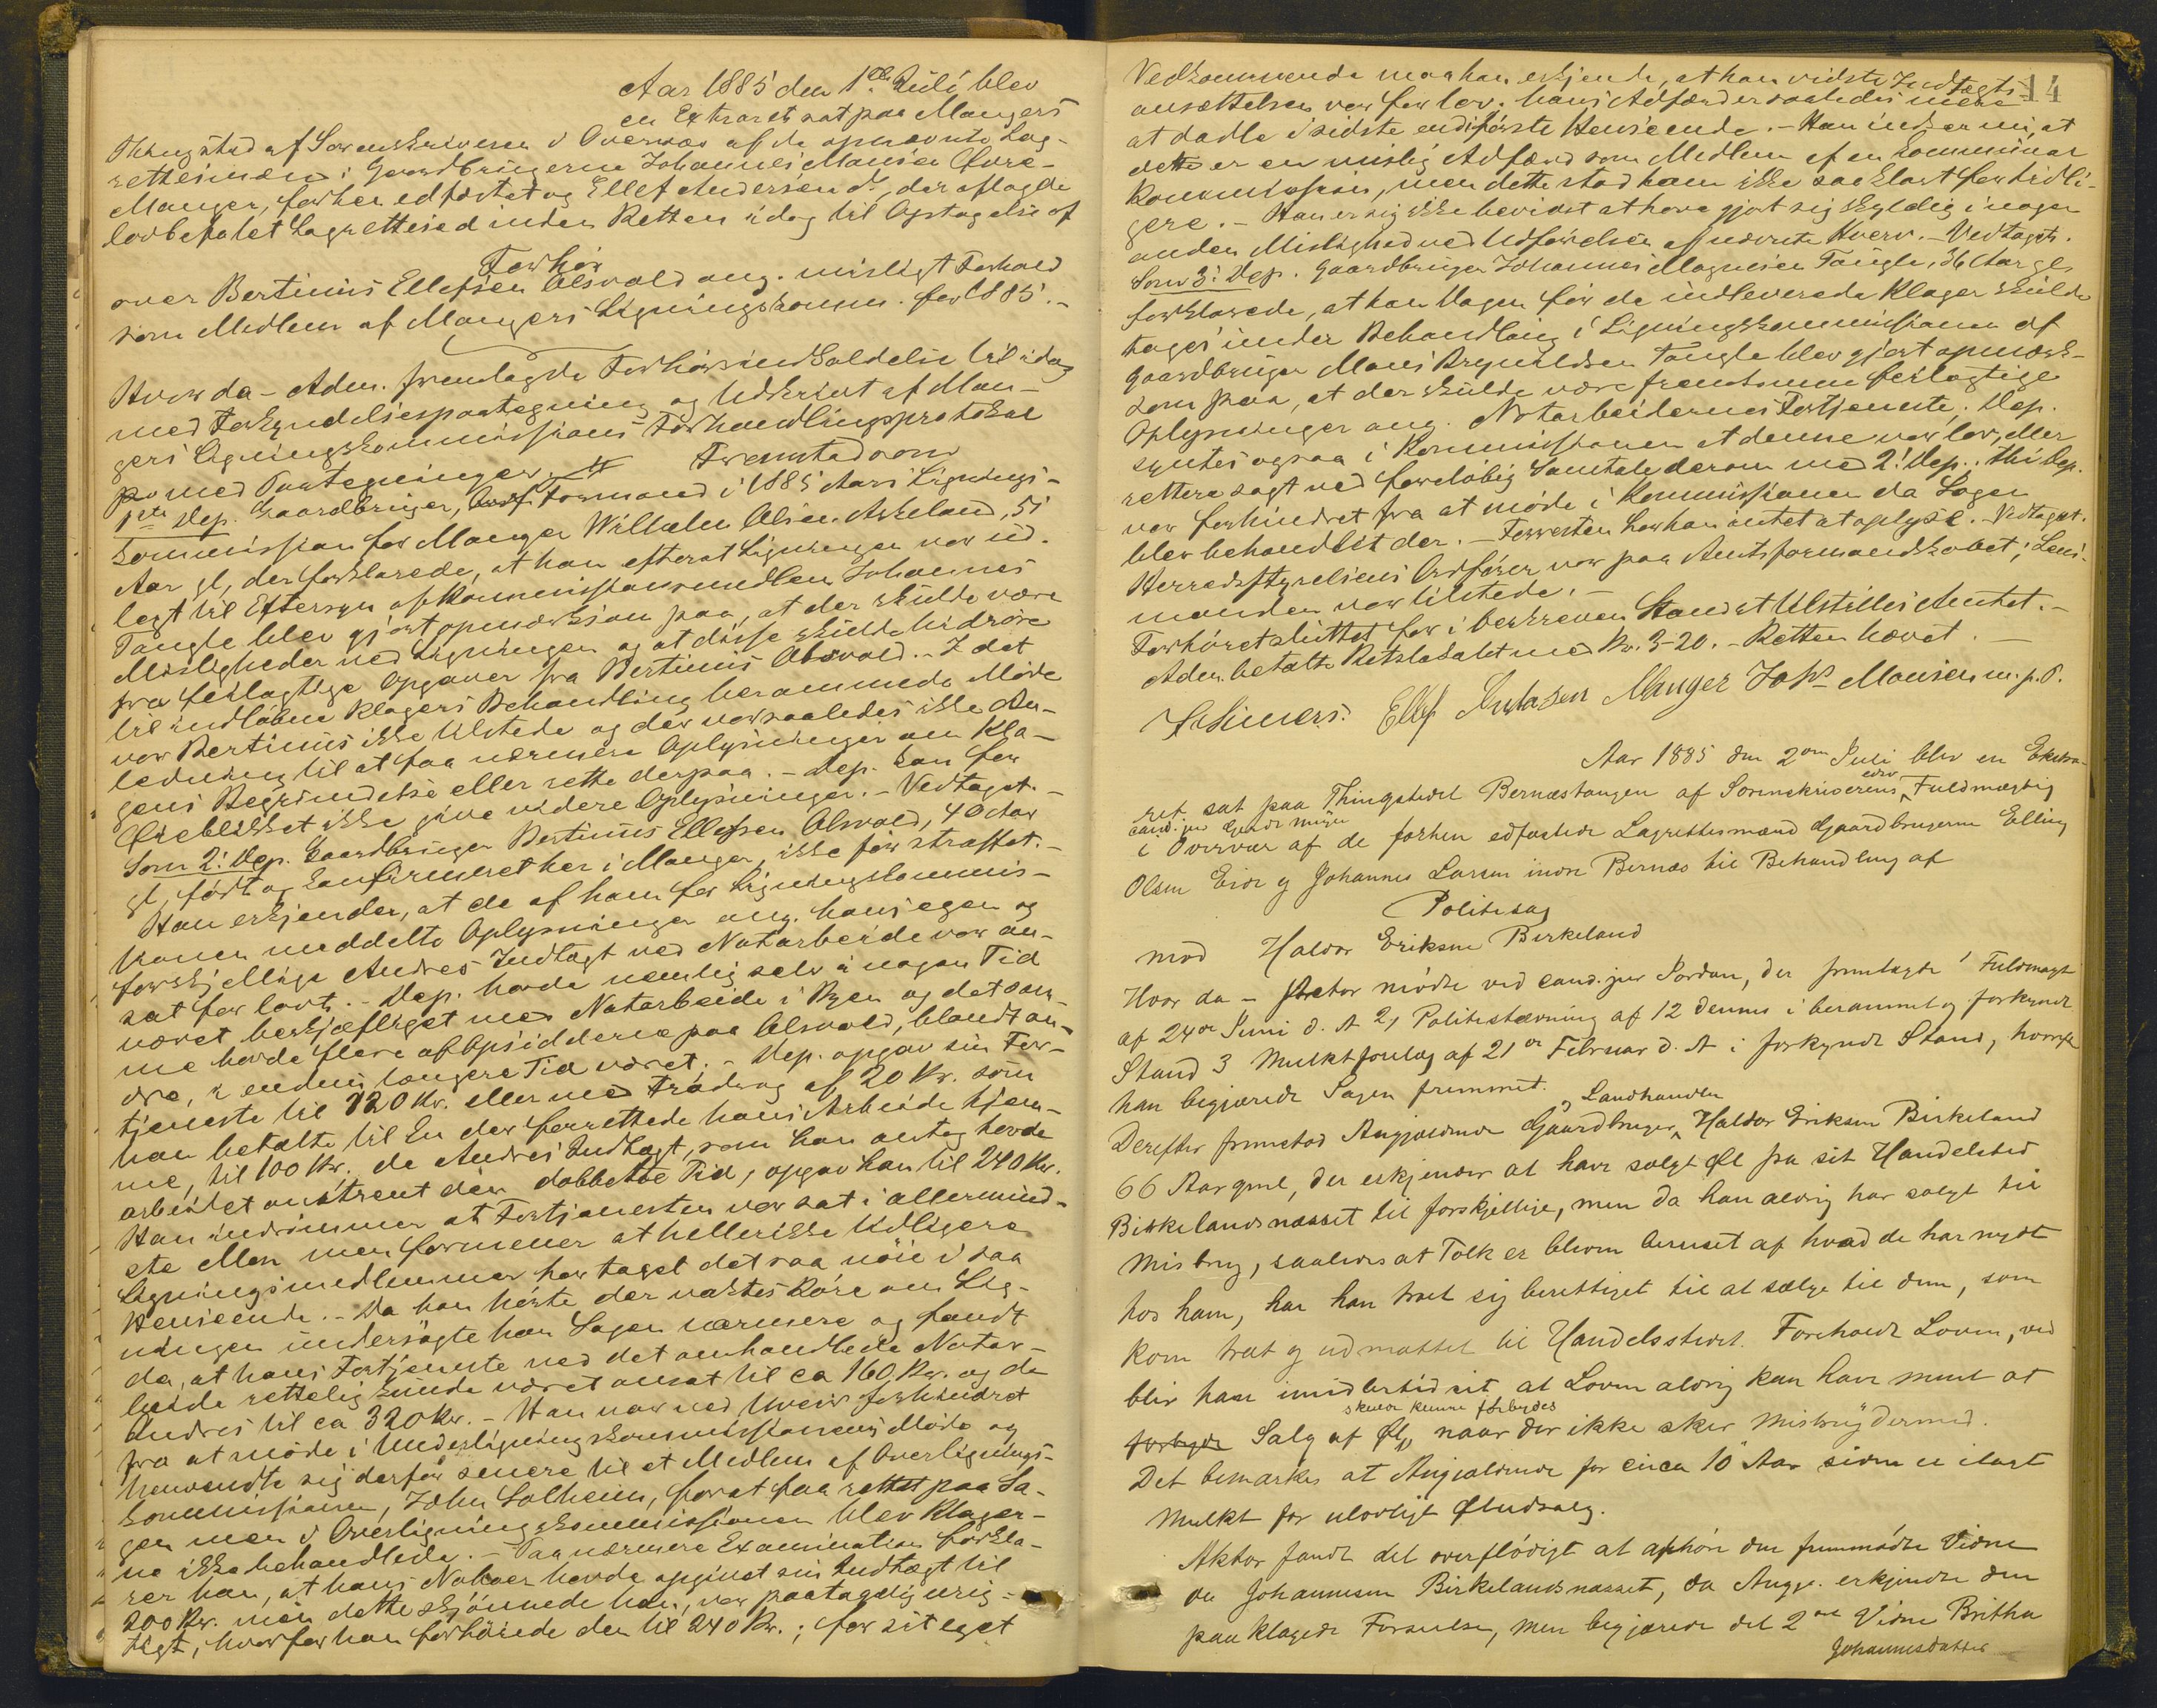 Aar 1885 den 1ste Juli blev
en Extraret sat paa Mangers
Thingsted af Sorenskriveren i Overvær af de opnævnte Lag-
rettesmænd: Gaardbrugerne Johannes Monsen Øvre-
Manger, forhen edfæstet og Ellef Andersen ds., der aflagde
lovbefalet Lagrettesed inden Retten idag til Optagelse af
Forhør
over Bertinus Ellefsen Alsvold ang. misligt Forhold
som Medlem af Mangers Ligningskomm. for 1885.-
Hvorda - Adm. fremlagde Forhørsindkaldelse til idag
med Forkyndelsespaategning og Udskrivt af Man-
gers Ligningskommissions Forhandlingsprotokol
med Paategninger. Fremstod som
1ste Dep. Gaardbruger, Formand i 1885 Aars Lignings-
kommission for Manger Wilhelm Olsen Askeland, 51
Aar gl, der forklarede, at han efterat Ligningen var ud-
lagt til Eftersyn af Kommissionsmedlem Johannes
Tangle blev gjort opmærksom paa, at der skulde være
Misligheder ved Ligningen og at disse skulde hidrøre
fra feilagtige Opgaver fra Bertinus Alsvold. - I det
til indløbne Klagers Behandling berammede Møde
var Bertinus ikke tilstede og der var saaledes ikke An-
ledning til at faa nærmere Oplysninger om Kla-
gens Begrundelse eller rette derpaa. - Dep. kan for
Øieblikket ikke give videre Oplysninger. - Vedtaget. -
Som 2. Dep. Gaardbruger Bertinus Ellefsen Alsvold, 40 Aar
gl, født og konfirmeret her i Manger, ikke før straffet. -
Han erkjender, at de af ham for Ligningskommis-
sionen meddelte Oplysninger ang. hans egen og
forskjellige Andres Indtægt ved Notarbeide var an-
sat for lavt. - Dep. havde nemlig selv i nogen Tid
været beskjæftiget med Notarbeide i Byen og det sam-
me havde flere af Opsidderne paa Alsvold, blandt an-
dre, i endnu længere Tid været. - Dep. opgav sin For-
tjeneste til 120 Kr. eller med Fradrag af 20 Kr. som
han betalte til En der forrettede hans Arbeide hjem-
me, til 100 Kr.; de Andres Indtægt, som han antog havde
arbeidet omtrent den dobbelte Tid, opgav han til 240 Kr.
Han indrømmer at Fortjenesten var sat i allermind-
ste Men men formener at hellerikke tidligere
Ligningsmedlemmer har taget det saa nøie i saa
Henseende. - Da han hørte der vaktes Røre om Lig-
ningen undersøgte han Sagen nærmere og fandt
da, at hans Fortjeneste ved det omhandlede Notar-
beide rettelig kunde været ansat til ca 160 Kr. og de
Andres til ca 320 Kr. - Han var ved Uveir forhindret
fra at møde i Underligningskommissionens Møde og
henvendte sig derfor senere til et Medlem af Overlignings-
kommissionen, John Solheim, for at faa rettet paa Sa-
gen men i Overligningskommissionen blev Klager-
ne ikke behandlede. - Paa nærmere Examination forkla-
rer han, at hans Naboer havde opgivet sin Indtægt til
200 Kr. men dette skjønnede han, var paatagelig urig-
tigt, hvorfor han forhøiede den til 240 Kr.; for sit eget
14
Vedkommende maa han erkjende, at han vidste Indtægts-
ansættelsen var for lav. hans Adfærd er saaledes mere
at dadle i sidste end i første Henseende. - Han indser nu, at
dette er en mislig Adfærd som Medlem af en kommunal
Kommission, men dette stod ham ikke saa klart for tidli-
gere. - Han er sig ikke bevidst at have gjort sig skyldig i nogen
anden Mislighed ved Udførelsen af nævnte Hverv. - Vedtaget.
Som 3. Dep. Gaardbruger Johannes Magnesen Tangle, 36 Aar gl,
forklarede, at han Dagen før de indleverede Klager skulde
tages under Behandling i Ligningskommissionen af
Gaardbruger Mons Brynildsen Tangle blev gjort opmærk-
som paa, at der skulde være fremkomne feilagtige
Oplysninger ang. Notarbeidernes Fortjeneste. Dep.
syntes ogsaa i Kommissionen at denne var lav, eller
rettere sagt ved foreløbig Samtale derom med 2. Dep., thi Dep.
var forhindret fra at møde i Kommissionen da Sagen
blev behandlet der. - Forresten har han intet at oplyse. - Vedtaget.
Herredsstyrelsens Ordfører var paa Amtsformandskabet; Lens-
manden var tilstede. -
Forhøret sluttet for i beskreven Stand at tilstilles Amtet. -
Adm. betalte Retslokalet med Kr. 3-20. - Retten hævet. -
Ellef Andasen Manger Johs Monsen m. p. P.
Aar 1885 den 2den Juli blev en Extra-
ret sat paa Thingstedet Bernæstangen af Sorenskriverens edsv. Fuldmægtig
cand. jur.
i Overvær af de forhen edfæstede Lagrettesmænd Gaardbrugerne Elling
Olsen Eide og Johannes Larsen indre Bernæs til Behandling af
Politisag
mod Haldor Eriksen Birkeland
Hvor da - Aktor mødte ved cand. jur. Jordan, der fremlagde 1 Fuldmagt
af 24de Juni d. A 2, Politistævning af 12 dennes i berammet og forkyndt
Stand 3 Mulktforelæg af 21de Februar d. A i forkyndt Stand, hvorpaa
han begjærede Sagen fremmet.
Derefter fremstod Angjældende Gaardbruger og Landhandler Haldor Eriksen Birkeland
66 Aar gml, der erkjender at have solgt Øl fra sit Handelsted
Birkelandsnæsset til forskjellige, men da han aldrig har solgt til
Misbrug, saaledes at Folk er bleven beruset af hvad de har nydt
hos ham, har han troet sig berettiget til at sælge til dem, som
kom træt og udmattet til Handelsstedet. Foreholdt Loven, ved
bliv han imidlertid sit, at Loven aldrig kan have ment at
skulde kunne forbydes
forbyde Salg af Øl, naar der ikke sker Misbrug dermed.
Det bemærkes at Angjældende for circa 10 Aar siden er ilagt
Mulkt for ulovligt Øludsalg.
Aktor fandt det overflødigt at afhøre den fremmødte Vidne
Johannesen Birkelandsnæsset, da Angjæ. erkjendte den
paaklagede Forseelse, men begjærede det 2det Vidne Britha
Johannesdatter